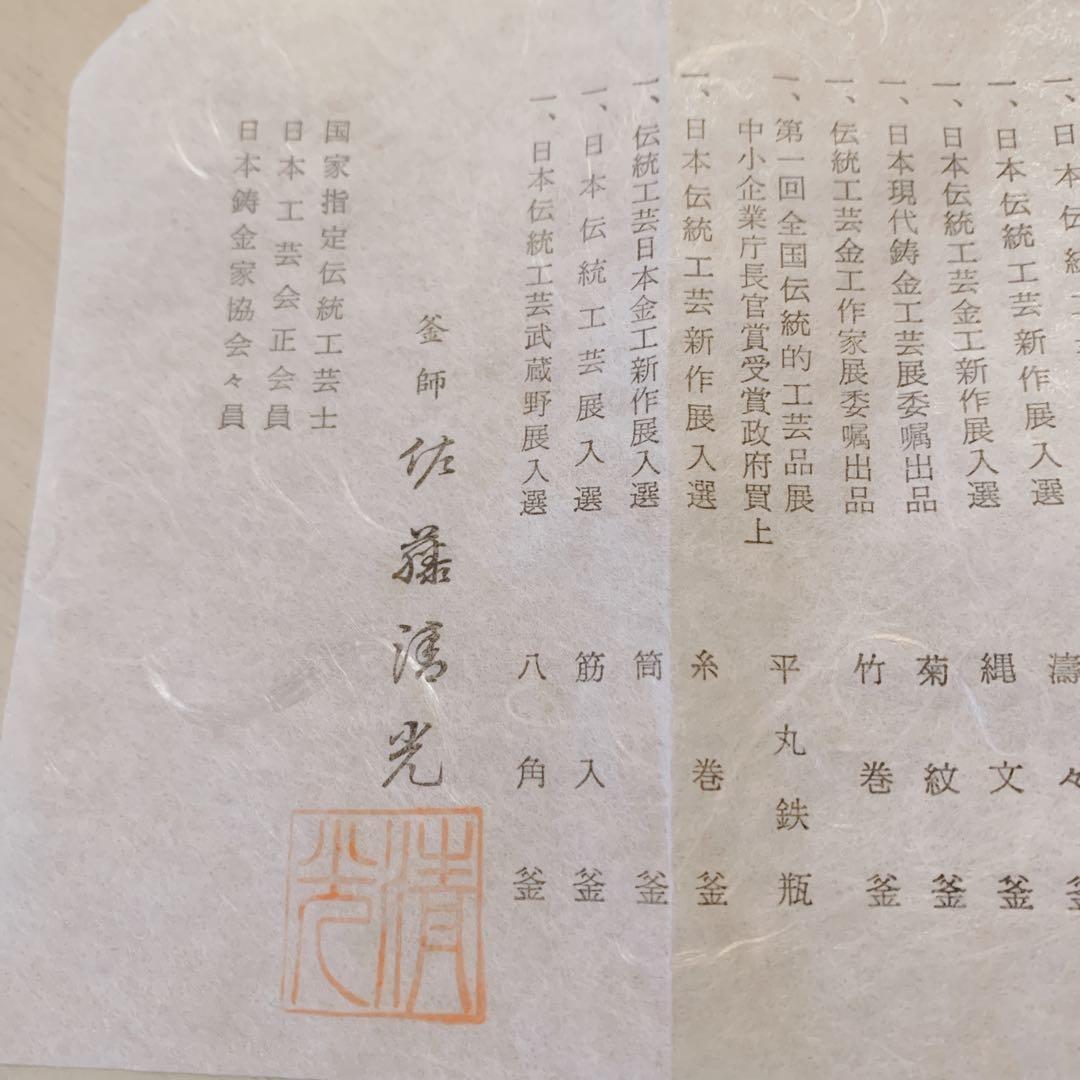 一、日本伝統工 濤々釜
一、日本伝統工芸新作展入選 縄文釜
一、日本伝統工芸金工新作展入選 菊紋釜
一、日本現代鋳金工芸展委嘱出品 竹巻釜
一、伝統工芸金工作家展委嘱出品
一、第一回全国伝統的工芸品展 平丸鉄瓶
中小企業庁長官賞受賞政府買上
一、日本伝統工芸新作展入選 糸巻釜
一、伝統工芸日本金工新作展入選 筒釜
一、日本伝統工芸展入選 筋入釜
一、日本伝統工芸武蔵野展入選 八角釜
釜師 佐藤清光
清光
国家指定伝統工芸士
日本工芸会正会員
日本鋳金家協会々員